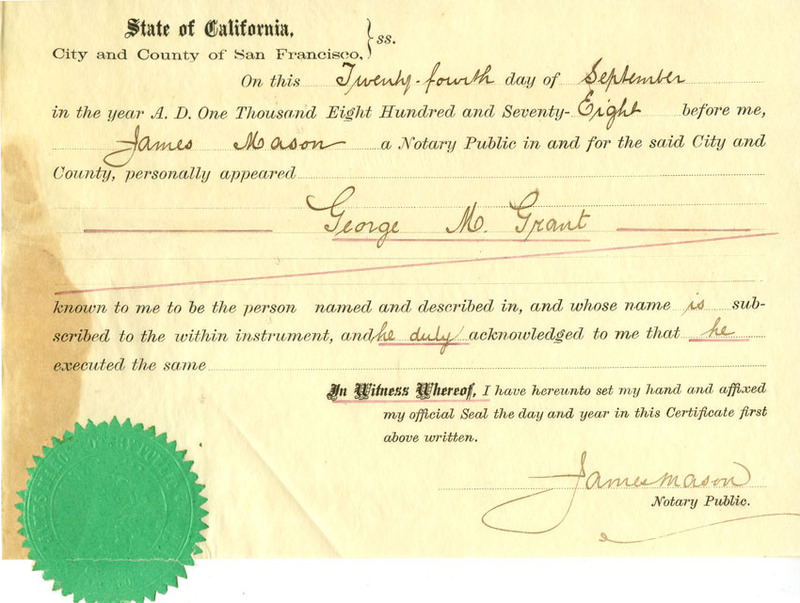 State of California,
City and County of San Francisco, } ss.
On this Twenty-fourth day of September
in the year A. D. One Thousand Eight Hundred and Seventy-Eight before me,
James Mason a Notary Public in and for the said City and
County, personally appeared
George M. Grant
known to me to be the person named and described in, and whose name is sub-
scribed to the within instrument, and he duly acknowledged to me that he
executed the same
In Witness Whereof, I have hereunto set my hand and affixed
my official Seal the day and year in this Certificate first
above written.
James Mason
Notary Public.